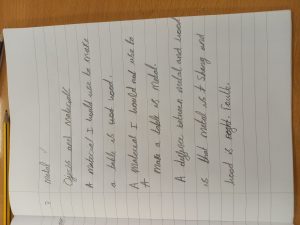 2 metal
Objects and materials
A material I would use to make
a table is wood.
A material I would not use to
A
make a table is metal.
A diffrence between metal and wood
is that metal is strong and
wood is